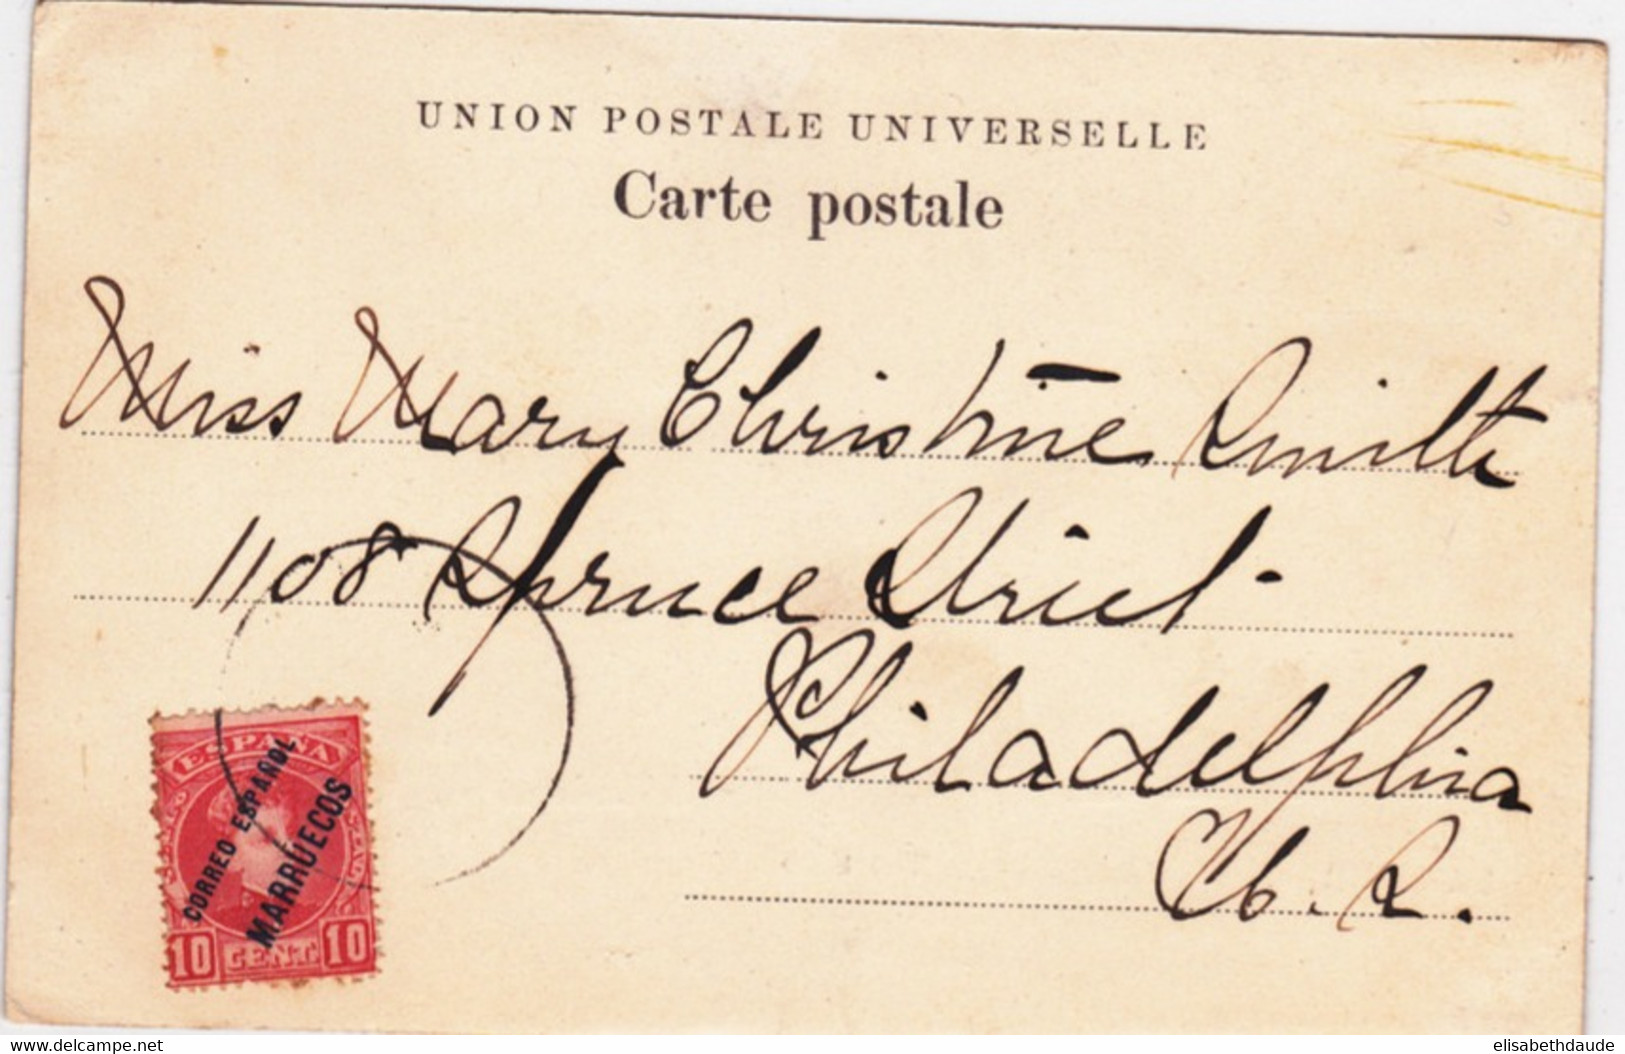 UNION POSTALE UNIVERSELLE
Carte postale
Miss Mary Christine Smith
1108 Spruce Street.
Philadelphia
U. S.
ESPAÑA
CORREO ESPAÑOL
MARRUECOS
10 CENT. 10
delcampe.net
elisabethdaude